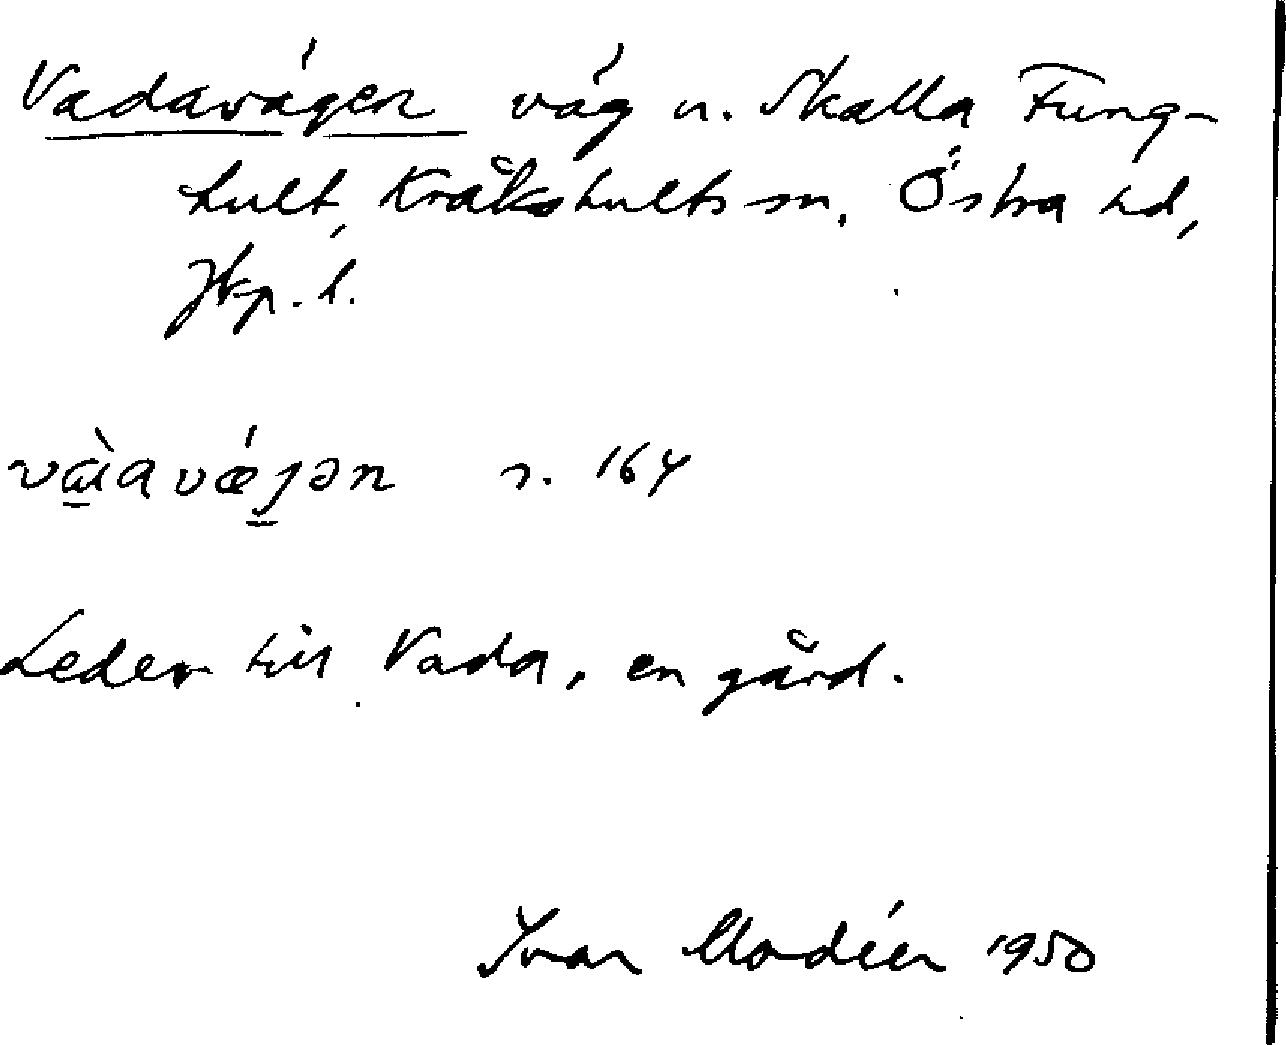 Vadavägen väg n. Skälla Fung-
hult, Kråkshults sn, Östra hd,
Jkp. l.
s. 164
Leder till Vada, en gård.
Ivar Modéer 1950